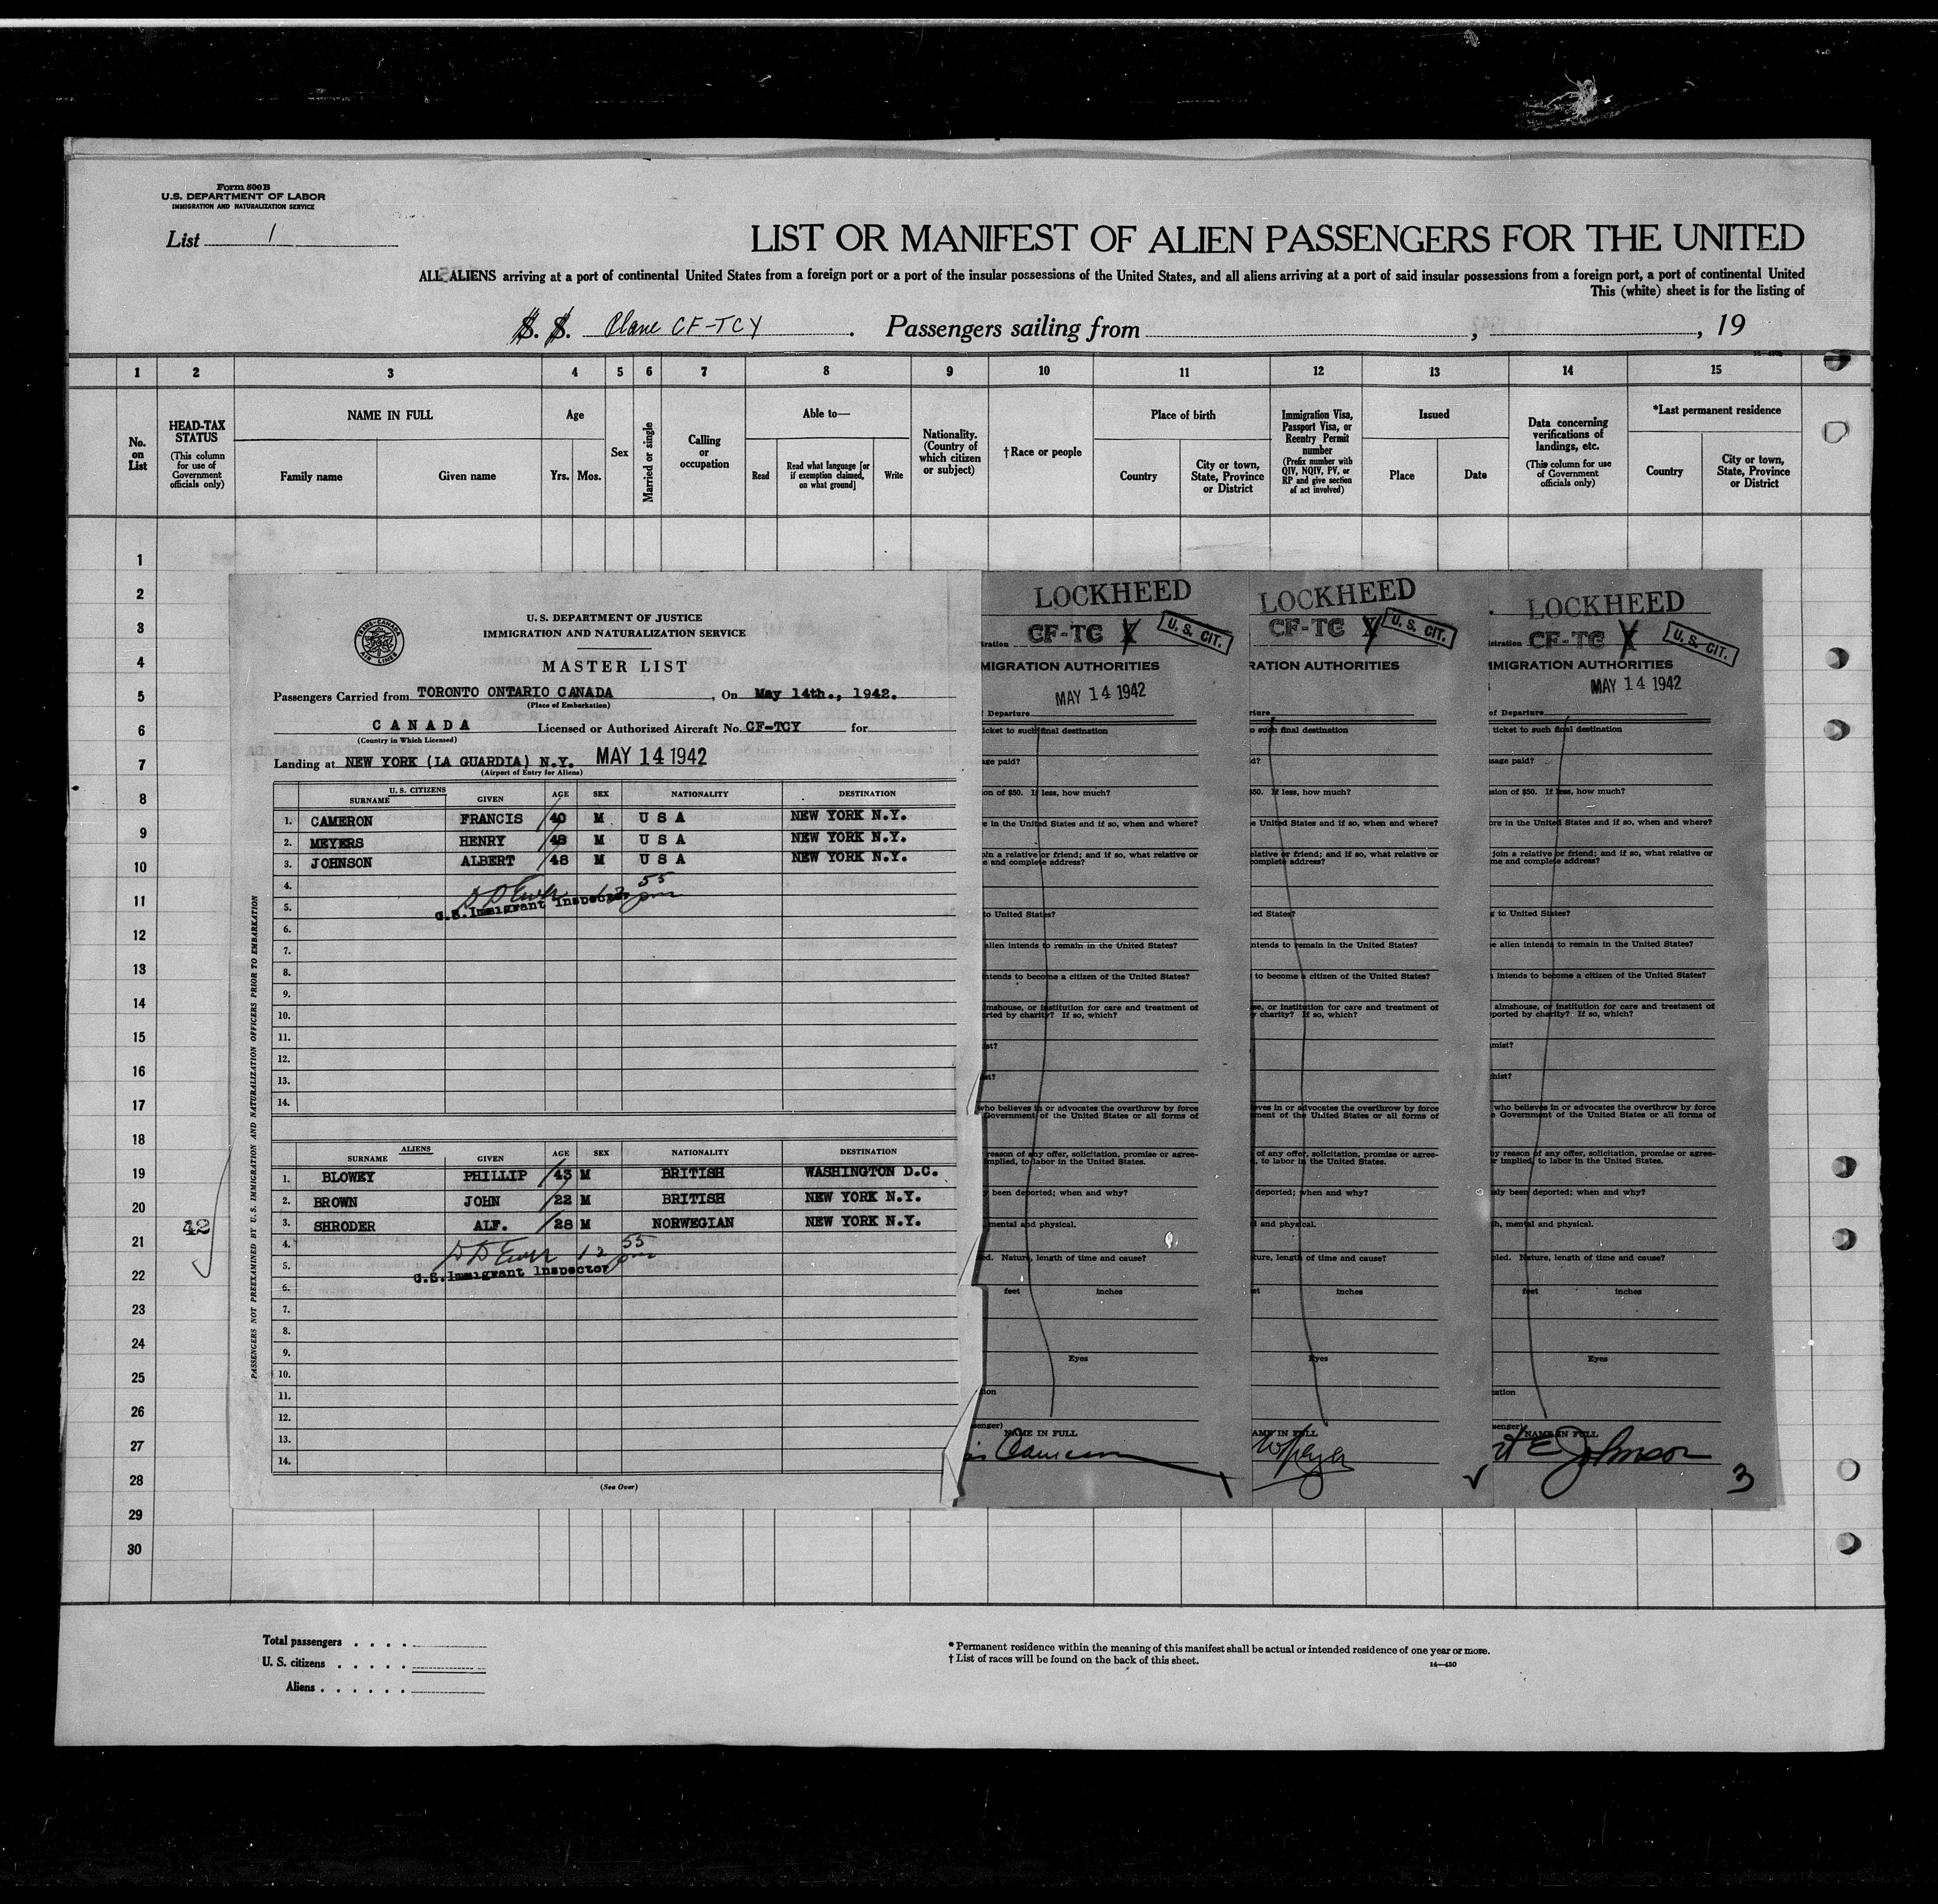 Form 500 B
U.S. DEPARTMENT OF LABOR
IMMIGRATION AND NATURALIZATION SERVICE
List 1
LIST OR MANIFEST OF ALIEN PASSENGERS FOR THE UNITED
ALL ALIENS arriving at a port of continental United States from a foreign port or a port of the insular possessions of the United States, and all aliens arriving at a port of said insular possessions from a foreign port, a port of continental United
This (white) sheet is for the listing of
S. S. Plane CF-TCY . Passengers sailing from , , 19
1 2 3 4 5 6 7 8 9 10 11 12 13 14 15
No. on List
HEAD-TAX STATUS
(This column for use of Government officials only)
NAME IN FULL
Family name Given name
Age
Yrs. Mos.
Sex
Married or single
Calling or occupation
Able to—
Read
Read what language [or if exemption claimed, on what ground]
Write
Nationality. (Country of which citizen or subject)
†Race or people
Place of birth
Country
City or town, State, Province or District
Immigration Visa, Passport Visa, or Reentry Permit number
(Prefix number with QIV, NQIV, PV, or RP and give section of act involved)
Issued
Place Date
Data concerning verifications of landings, etc.
(This column for use of Government officials only)
*Last permanent residence
Country
City or town, State, Province or District
1
2
3
4
5
6
7
8
9
10
11
12
13
14
15
16
17
18
19
20
21
22
23
24
25
26
27
28
29
30
42
TRANS-CANADA AIR LINES
U. S. DEPARTMENT OF JUSTICE
IMMIGRATION AND NATURALIZATION SERVICE
MASTER LIST
Passengers Carried from TORONTO ONTARIO CANADA , On May 14th., 1942.
(Place of Embarkation)
CANADA Licensed or Authorized Aircraft No. CF-TCY for
(Country in Which Licensed)
Landing at NEW YORK (LA GUARDIA) N.Y. MAY 14 1942
(Airport of Entry for Aliens)
U. S. CITIZENS
SURNAME GIVEN AGE SEX NATIONALITY DESTINATION
1. CAMERON FRANCIS 40 M U S A NEW YORK N.Y.
2. MEYERS HENRY 48 M U S A NEW YORK N.Y.
3. JOHNSON ALBERT 48 M U S A NEW YORK N.Y.
4.
5. U.S. Immigrant Inspector 12 55 pm
6.
7.
8.
9.
10.
11.
12.
13.
14.
ALIENS
SURNAME GIVEN AGE SEX NATIONALITY DESTINATION
1. BLOWEY PHILLIP 43 M BRITISH WASHINGTON D.C.
2. BROWN JOHN 22 M BRITISH NEW YORK N.Y.
3. SHRODER ALF. 28 M NORWEGIAN NEW YORK N.Y.
4. 12 55 pm
5. U.S. Immigrant Inspector
6.
7.
8.
9.
10.
11.
12.
13.
14.
(See Over)
PASSENGERS NOT PREEXAMINED BY U.S. IMMIGRATION AND NATURALIZATION OFFICERS PRIOR TO EMBARKATION
LOCKHEED
tration CF-TC Y U. S. CIT.
MIGRATION AUTHORITIES
MAY 14 1942
f Departure
ticket to such final destination
age paid?
on of $50. If less, how much?
e in the United States and if so, when and where?
oin a relative or friend; and if so, what relative or
e and complete address?
to United States?
alien intends to remain in the United States?
ntends to become a citizen of the United States?
lmshouse, or institution for care and treatment of
rted by charity? If so, which?
ist?
st?
who believes in or advocates the overthrow by force
Government of the United States or all forms of
reason of any offer, solicitation, promise or agree-
mplied, to labor in the United States.
y been deported; when and why?
mental and physical.
ed. Nature, length of time and cause?
feet inches
Eyes
ion
senger)
NAME IN FULL
is Cameron
LOCKHEED
CF-TC Y U. S. CIT.
RATION AUTHORITIES
rture
o such final destination
d?
50. If less, how much?
e United States and if so, when and where?
elative or friend; and if so, what relative or
complete address?
ted States?
ntends to remain in the United States?
to become a citizen of the United States?
se, or institution for care and treatment of
y charity? If so, which?
eves in or advocates the overthrow by force
ment of the United States or all forms of
of any offer, solicitation, promise or agree-
, to labor in the United States.
deported; when and why?
l and physical.
ture, length of time and cause?
et inches
Eyes
AME IN FULL
LOCKHEED
istration CF-TC Y U. S. CIT.
IMMIGRATION AUTHORITIES
MAY 14 1942
of Departure
ticket to such final destination
ssage paid?
sion of $50. If less, how much?
ore in the United States and if so, when and where?
join a relative or friend; and if so, what relative or
me and complete address?
g to United States?
e alien intends to remain in the United States?
n intends to become a citizen of the United States?
almshouse, or institution for care and treatment of
ported by charity? If so, which?
mist?
hist?
who believes in or advocates the overthrow by force
e Government of the United States or all forms of
by reason of any offer, solicitation, promise or agree-
r implied, to labor in the United States.
sly been deported; when and why?
h, mental and physical.
pled. Nature, length of time and cause?
feet inches
Eyes
cation
senger)
NAME IN FULL
rt E Johnson
3
Total passengers
U. S. citizens
Aliens
* Permanent residence within the meaning of this manifest shall be actual or intended residence of one year or more.
† List of races will be found on the back of this sheet.
14—430